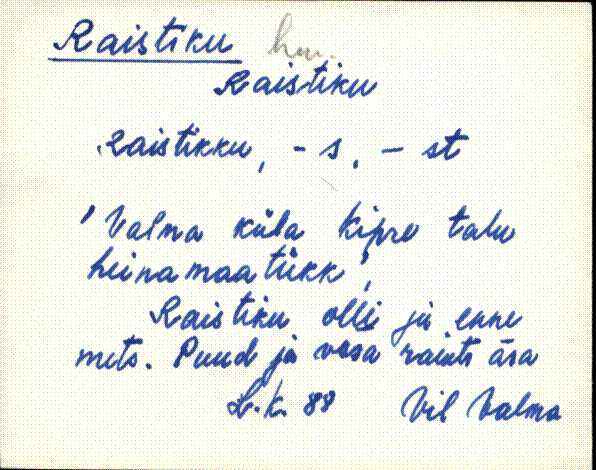 Raistiku
Raistiku
Raistikku, - s, - st
' Valma küla Kipre talu
heinamaa tükk',
Raistiku olli jü enne
mets. Puud ja vosa raiuts ära
L. K. 88 Vil Valma